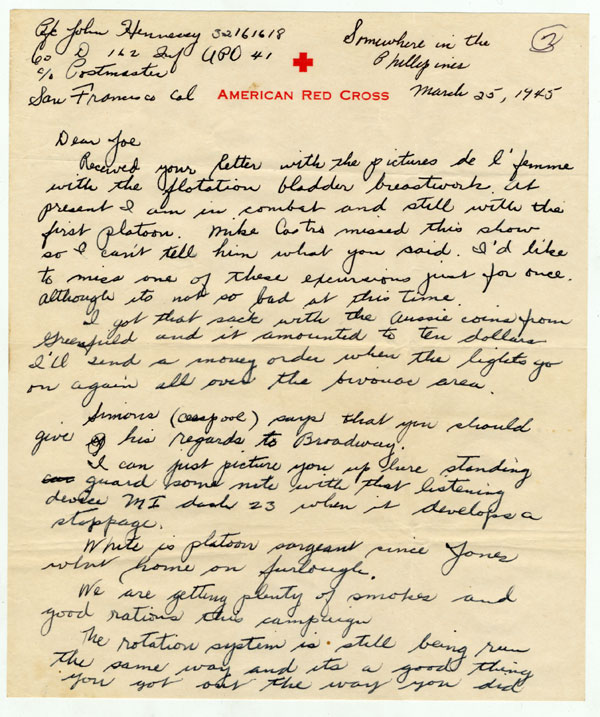 Pfc John Hennessy 32161618
Co D 162 Inf APO 41
c/o Postmaster
San Francisco Cal
Somewhere in the
Phillipines
2
AMERICAN RED CROSS
March 25, 1945
Dear Joe
Received your letter with the pictures de l'femme
with the flotation bladder breastwork. At
present I am in combat and still with the
first platoon. Mike Castro missed this show
so I can't tell him what you said. I'd like
to miss one of these excursions just for once.
Although its not so bad at this time.
I got that sack with the Aussie coins from
Greenfield and it amounted to ten dollars
I'll send a money order when the lights go
on again all over the bivouac area.
Simons (cesspool) says that you should
give his regards to Broadway.
I can just picture you up here standing
guard some nite with that listening
device MI dash 23 when it develops a
stoppage.
White is platoon sargeant since Jones
went home on furlough.
We are getting plenty of smokes and
good rations this campaign
The rotation system is still being run
the same way and its a good thing
you got out the way you did